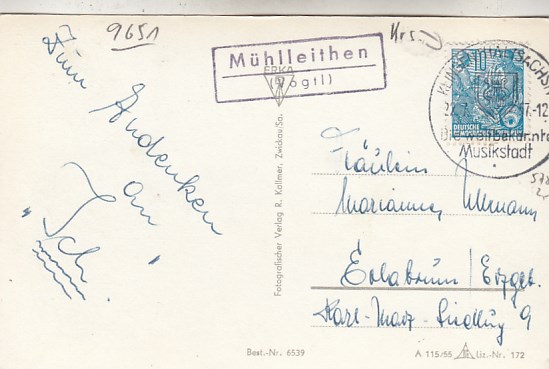 9651
Krs.
Zum
Andenken
an
"Ich"
Mühlleithen
(Vogtl)
ERKA
KLINGENTHAL/SACHS
22.7. 57.-12
Die weltbekannte
Musikstadt
10
DEUTSCHE
DEMOKRATISCHE
Fräulein
Marianne Ullmann
Erlabrunn/Erzgeb.
Karl-Marx-Siedlung 9
Fotografischer Verlag R. Kallmer, Zwickau/Sa.
Best.-Nr. 6539
A 115/55 Liz.-Nr. 172